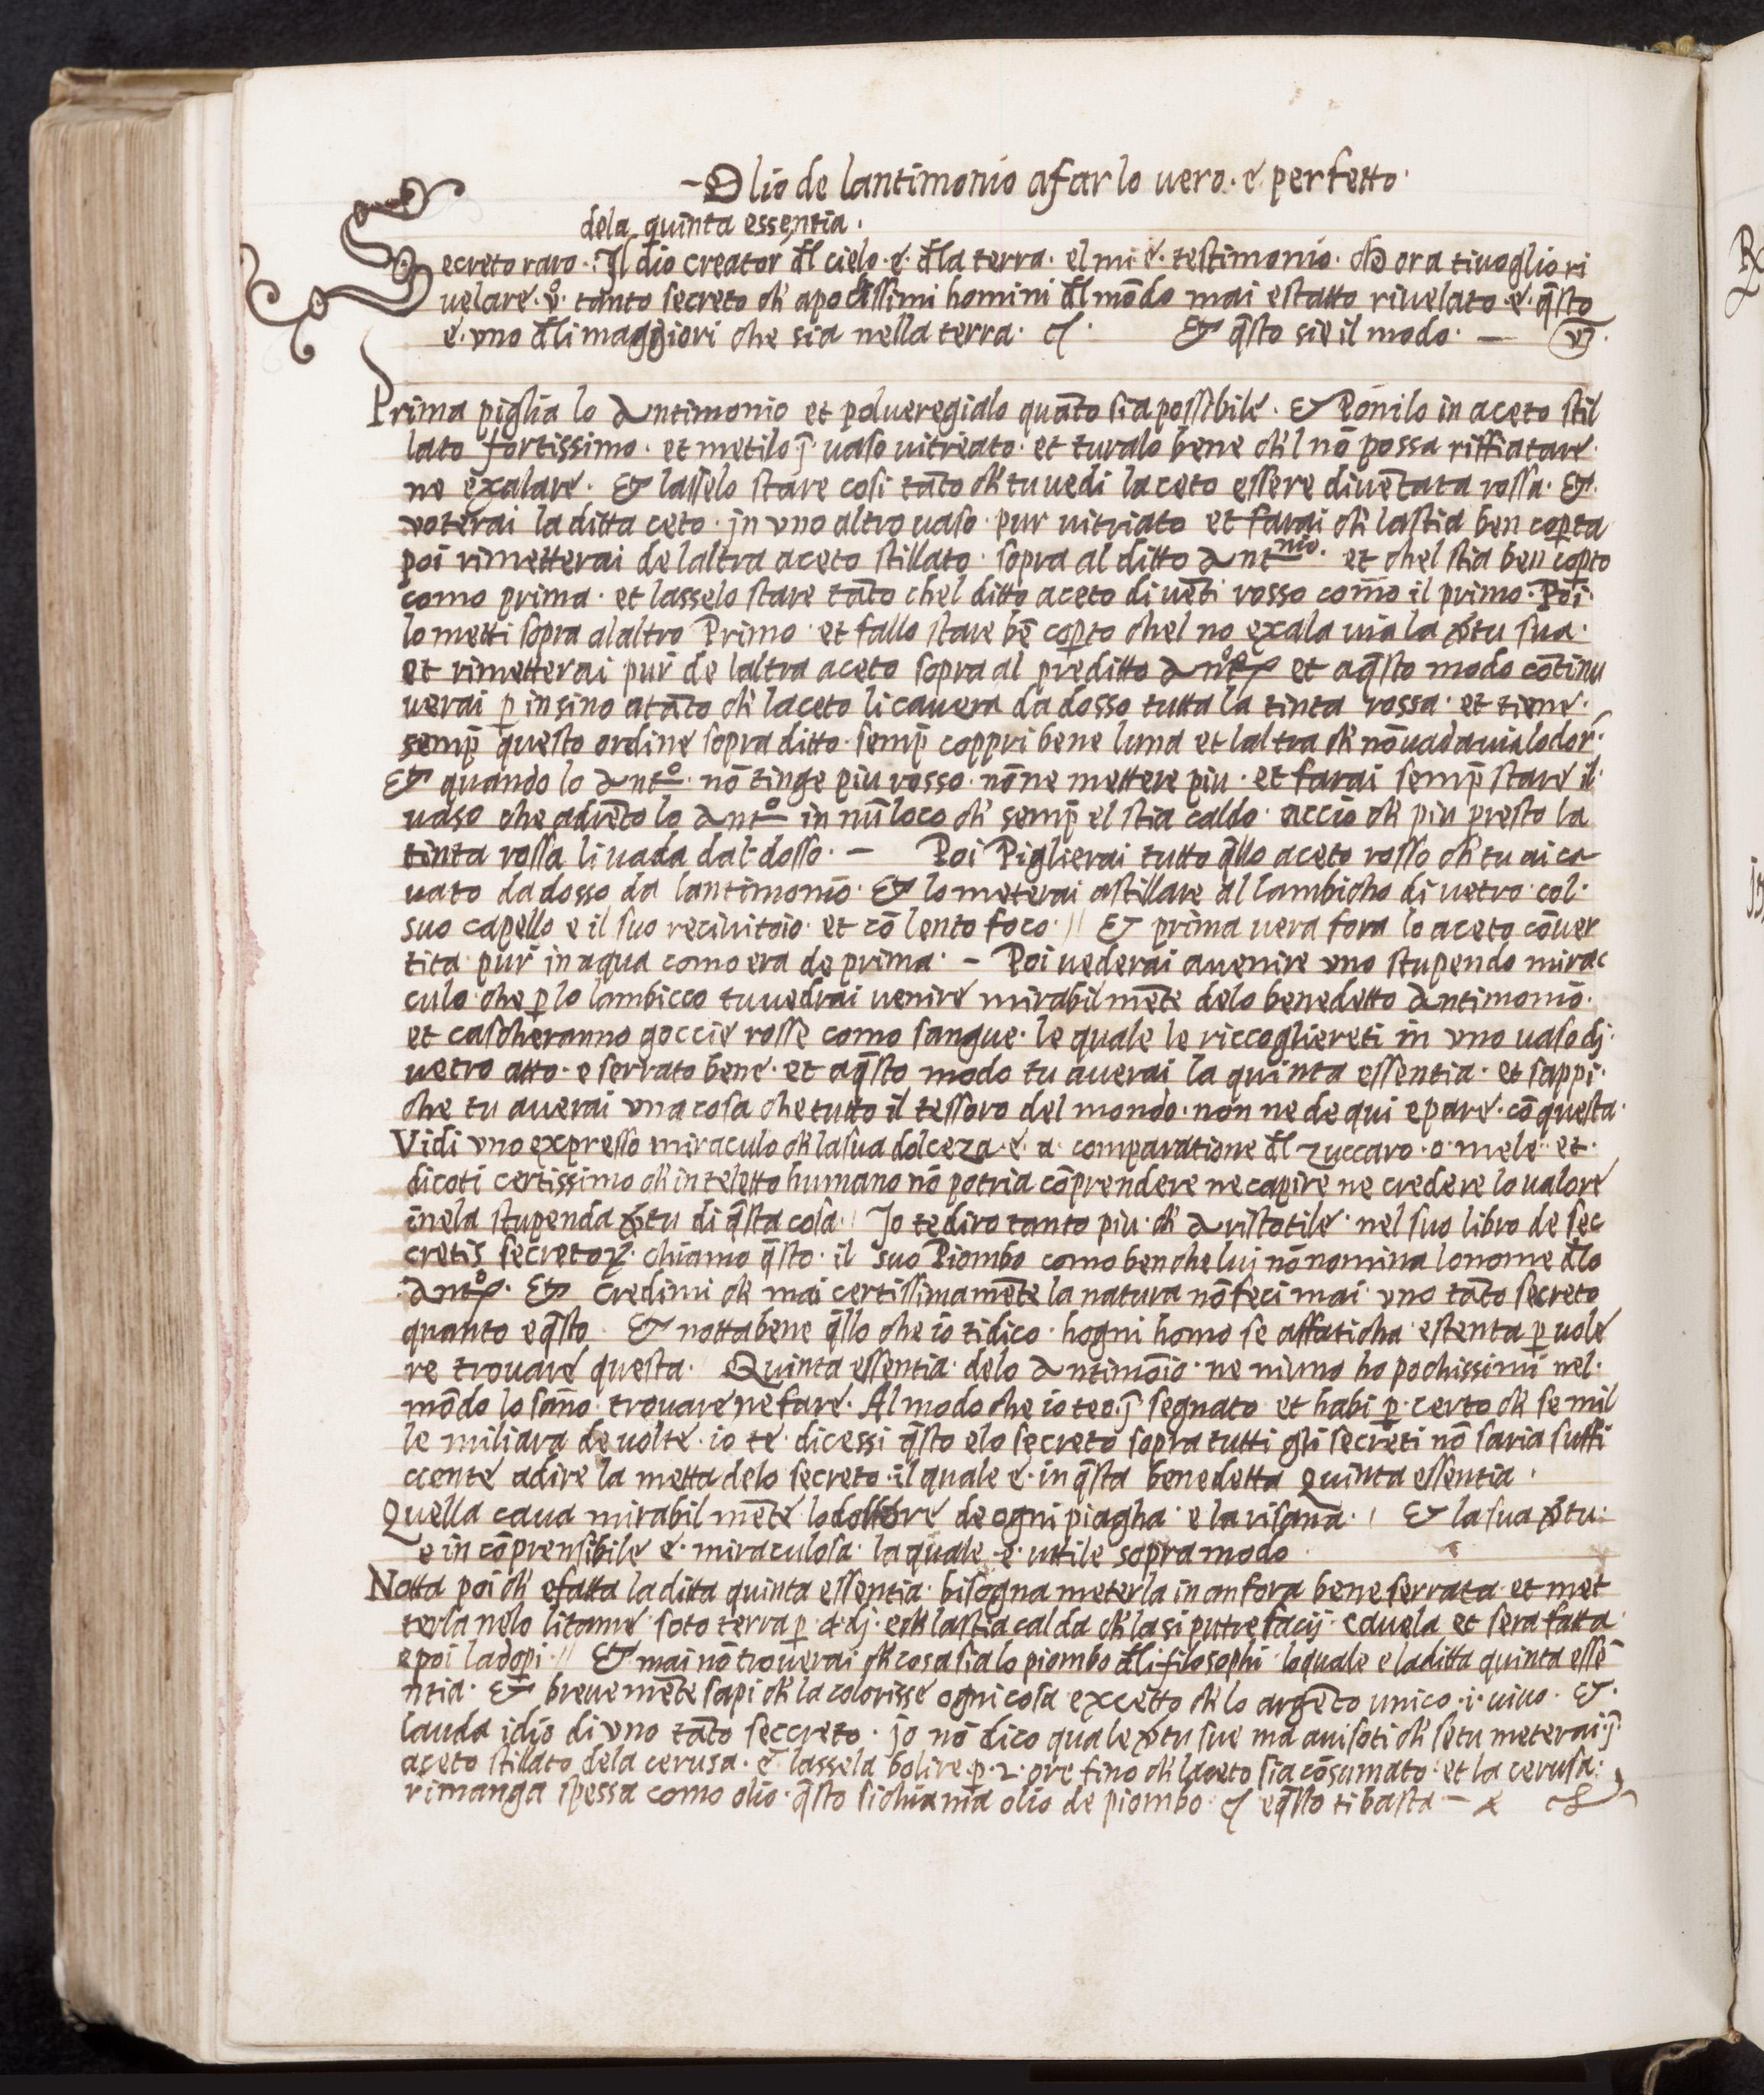 Olio de lantimonio afar lo uero · e · perfetto ·
dela quinta essentia ·
Secreto raro · Il dio creator đl cielo · e · đla terra · el mi è · testimonio · che ora ti uoglio ri
uelare · tanto secreto ch' a pochissimi homini đl mōdo mai e statto riuelato · e · q̄sto
e · vno đli maggiori che sia nella terra · Et q̄sto sie il modo · —
Prima piglia lo Antimonio et polueregialo quāto sia possibile · Et Ponilo in aceto stil
lato fortissimo · et metilo j̄ uaso uitreato · et turalo bene ch'l nō possa riffiatare ·
ne exalare · Et lasselo stare cosi tāto ch' tu uedi laceto essere diuētata rossa · Et
voterai la ditta ceto · jn vno altro uaso pur uitriato et farai ch' la stia ben cop̱ta
poi rimetterai de laltra aceto stillato · sopra al ditto Antnio · et chel stia ben cop̱to
como prima · et lasselo stare tāto chel ditto aceto diuēti rosso com̄o il primo · Poi ·
lo metti sopra al altro Primo · et fallo stare bē cop̱to chel no exala uia la v̄tu sua ·
et rimetterai pur de laltra aceto sopra al preditto Anto et a q̄sto modo cōtinu
uerai p̱ insino a tāto ch' laceto li cauera da dosso tutta la tinta rossa · et tiene ·
semp̄ questo ordine sopra ditto · semp̄ coppri bene luna et laltra ch' nō uada uia lodor ·
Et quando lo Anto · nō tinge piu rosso · nō ne mettere piu · et farai semp̄ stare il
uaso che adrēto lo Anto in nū loco ch' semp̄ el stia caldo · accio ch' piu presto la
tinta rossa li uada dal dosso · — Poi Piglierai tutto q̄llo aceto rosso ch' tu ai ca
uato da dosso da lantimonio · Et lo meterai a stillare al lambicho di uetro · col ·
suo capello e il suo reciuitoio · et cō lento foco · // Et prima uera fora lo aceto cōuer
tita pur in aqua como era de prima · — Poi uederai auenire vno stupendo mirac
culo · che p̱ lo lambicco tu uedrai uenire mirabilmēte delo benedetto Antimonio ·
et cascheranno goccie rosse como sangue · le quale le riccogliereti in vno uaso dj
uetro atto · e serrato bene · et a q̄sto modo tu auerai la quinta essentia · et sappi ·
che tu auerai vna cosa che tutto il tessoro del mondo · non ne de qui e pare · cō questa ·
Vidi vno expresso miraculo ch' la sua dolceza · e · a · comparatione đl zuccaro · o · mele · et ·
dicoti certissimo ch' inteletto humano nō potria cōprendere ne capire ne credere lo ualore
inela stupenda v̄tu di q̄sta cosa · Jo te diro tanto piu · ch' Aristotile · nel suo libro de sec
cretis secretoꝝ · chiamo q̄sto · il suo Piombo como ben che luj nō nomina lo nome đlo
Anto · Et credimi ch' mai certissimamēte la natura nō feci mai vno tāto secreto
quanto e q̄sto · Et notta bene q̄llo che io ti dico · hogni homo se affaticha e stenta p̱ uole
re trouare questa · Quinta essentia · delo Antimōio · ne niuno ho pochissimi nel ·
mōdo lo sāno trouare ne fare · Al modo che io te o · j̄ segnato et habi p̱ certo ch' se mil
le miliara de uolte · io te · dicessi q̄sto e lo secreto sopra tutti gli secreti nō saria suffi
ciente a dire la metta delo secreto · il quale e · in q̄sta benedetta Quinta essentia ·
Quella caua mirabilmēte lo dollore de ogni piagha · e la risana · / Et la sua v̄tu :
e incōprensibile e · miraculosa · la quale · e · uttile sopra modo
Notta poi ch' e fatta la ditta quinta essentia · bisogna meterla in anfora bene serrata · et met
terla nelo litame · soto terra p̱ dj · e ch' la stia calda ch' la si putrefacij · cauela et sera fatta
e poi ladop̱i // Et mai nō trouerai ch' cosa sia lo piombo đli filosophi · lo quale e la ditta quinta essē
ntia · Et breuemēte sapi ch' la colorisse ogni cosa excetto ch' lo argēto unico · i · uiuo · Et ·
lauda idio di vno tāto seccreto · jo nō dico quale v̄tu sue ma auisoti ch' se tu meterai j̄
aceto stillato dela cerusa · e lassela bolire · p̱ · 2 · ore fino ch' laceto sia cōsumato · et la cerusa :
rimanga spessa como olio · q̄sto si chiama olio de piombo · e q̄sto ti basta —